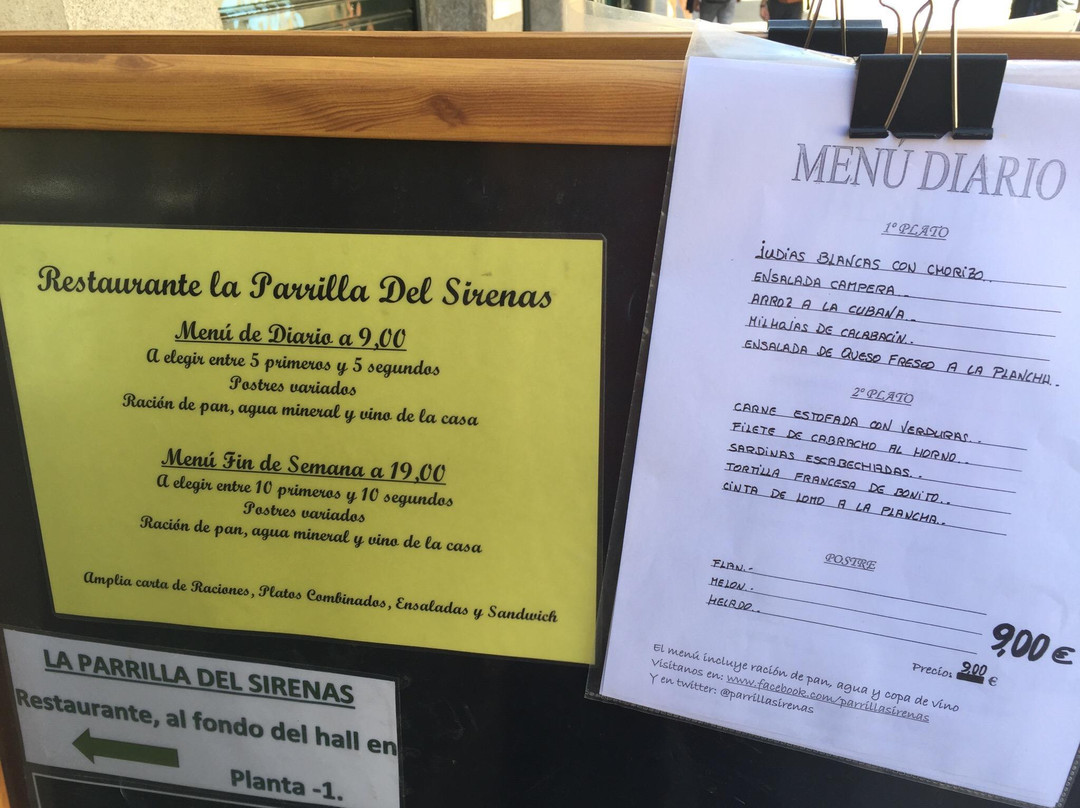 Restaurante la Parrilla Del Sirenas
Menú de Diario a 9,00
A elegir entre 5 primeros y 5 segundos
Postres variados
Ración de pan, agua mineral y vino de la casa
Menú Fin de Semana a 19,00
A elegir entre 10 primeros y 10 segundos
Postres variados
Ración de pan, agua mineral y vino de la casa
Amplia carta de Raciones, Platos Combinados, Ensaladas y Sandwich
LA PARRILLA DEL SIRENAS
Restaurante, al fondo del hall en
Planta -1.
MENÚ DIARIO
1º PLATO
JUDIAS BLANCAS CON CHORIZO..
ENSALADA CAMPERA..
ARROZ A LA CUBANA..
MILHOJAS DE CALABACIN..
ENSALADA DE QUESO FRESCO A LA PLANCHA..
2º PLATO
CARNE ESTOFADA CON VERDURAS..
FILETE DE CABRACHO AL HORNO..
SARDINAS ESCABECHADAS..
TORTILLA FRANCESA DE BONITO..
CINTA DE LOMO A LA PLANCHA..
POSTRE
FLAN.-
MELON.-
HELADO..
9,00 €
Precio: 9,00 €
El menú incluye ración de pan, agua y copa de vino
Visitanos en: www.facebook.com/parrillasirenas
Y en twitter: @parrillasirenas